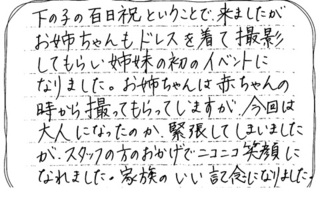 下の子の百日祝ということで、来ましたが
お姉ちゃんもドレスを着て撮影
してもらい姉妹の初のイベントに
なりました。お姉ちゃんは赤ちゃんの
時から撮ってもらってしますが、今回は
大人になったのか、緊張してしまいました
が、スタッフの方のおかげでニコニコ笑顔に
なれました。家族のいい記念になりました。